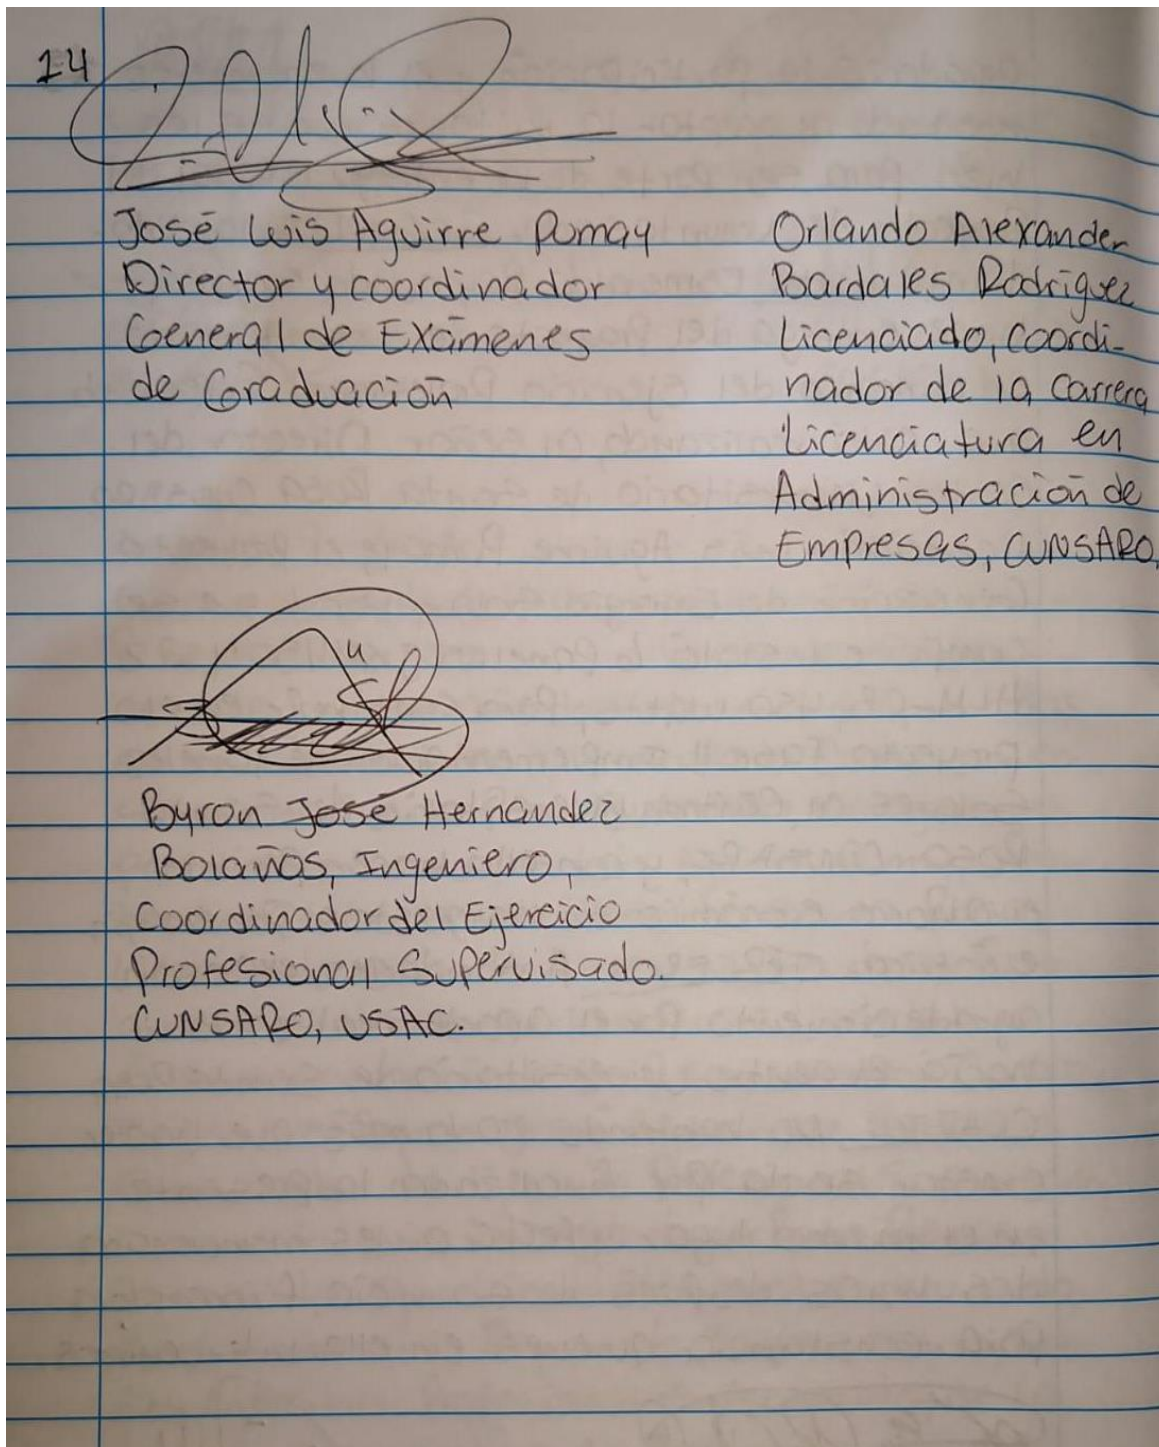 14
José Luis Aguirre Pumay
Director y coordinador
General de Exámenes
de Graduación
Orlando Alexander
Bardales Rodriguez
Licenciado, coordi-
nador de la carrera
Licenciatura en
Administración de
Empresas, CUNSARO.
Byron José Hernandez
Bolaños, Ingeniero,
Coordinador del Ejercicio
Profesional Supervisado.
CUNSARO, USAC.